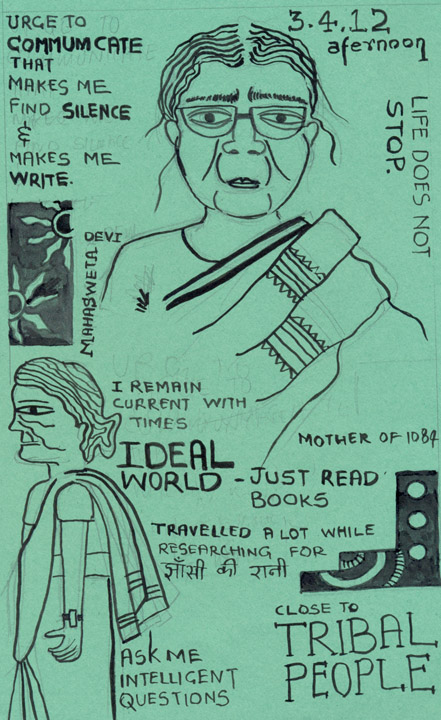 URGE TO
COMMUMCATE
THAT
MAKES ME
FIND SILENCE
&
MAKES ME
WRITE.
3.4.12
afernoon
LIFE DOES NOT
STOP.
MAHASWETA DEVI
I REMAIN
CURRENT WITH
TIMES
MOTHER OF 1084
IDEAL
WORLD - JUST READ
BOOKS
TRAVELLED A LOT WHILE
RESEARCHING FOR
झाँसी की रानी
CLOSE TO
TRIBAL
PEOPLE
ASK ME
INTELLIGENT
QUESTIONS